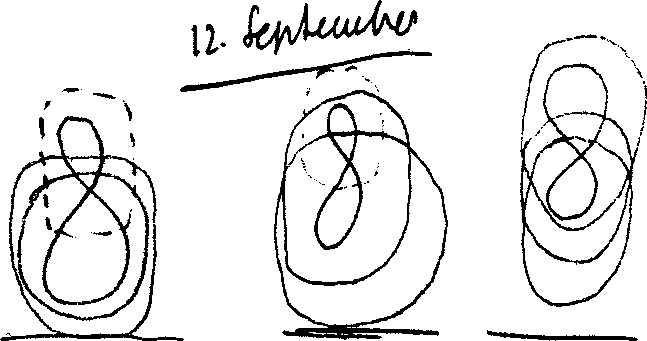 12. September